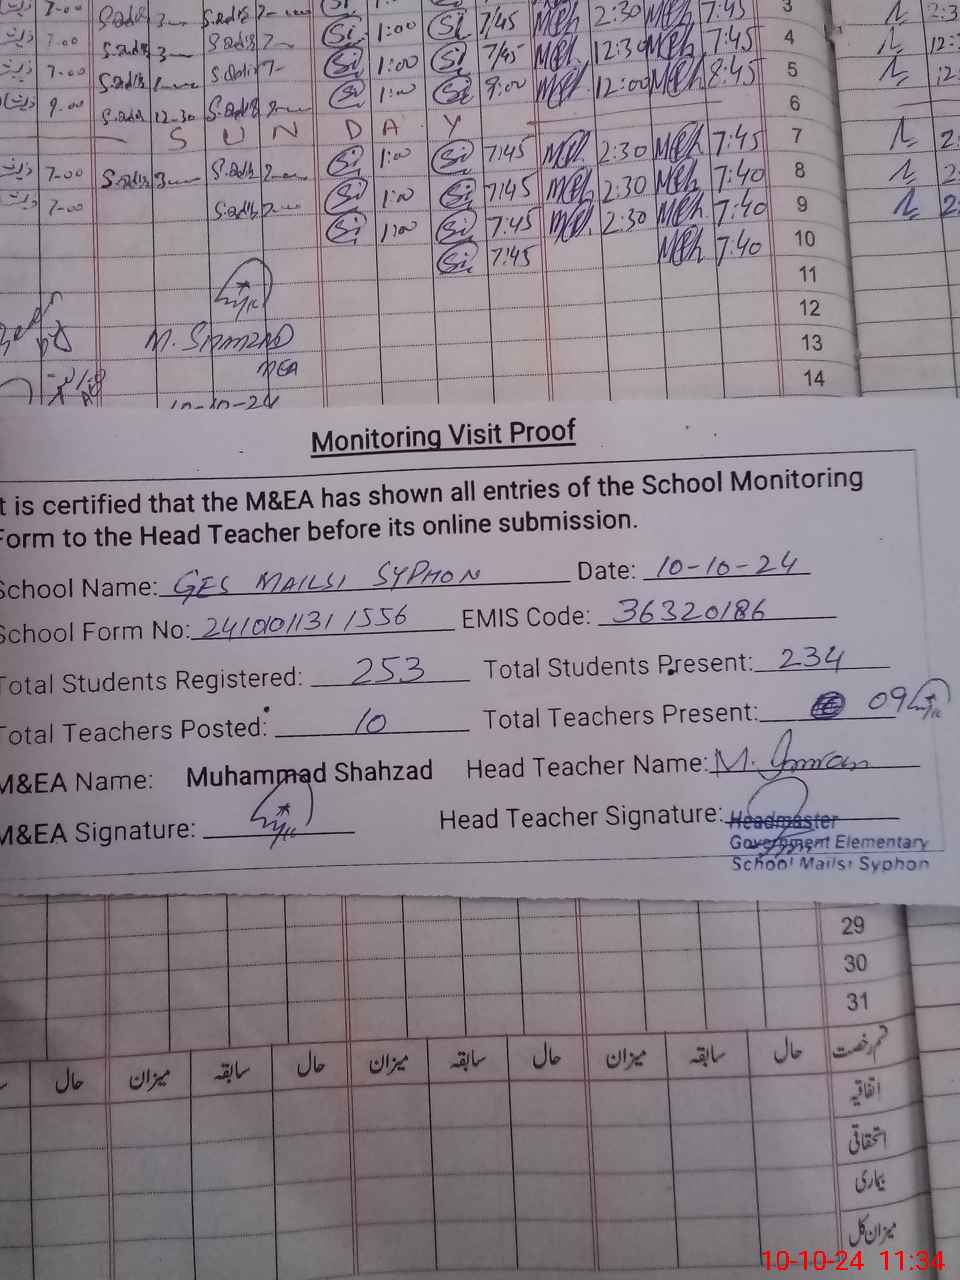 7-00 3 2 1:00 Si 7/45 Mph 2:30 Mph 7:45 3
7.00 Sadiq 3 Sadiq 7 Si 1:00 Si 7/45 Mph 12:30 Mph 7:45 4
7-00 Si 1:00 Si 9:00 Mph 12:00 Mph 8:45 5
9.00 12-30 6
S U N D A Y
7-00 Sadiq 3 Sadiq Si 1:00 Si 7:45 Mph 2:30 Mph 7:45 7
7-00 Sadiq Si 1:00 Si 7:45 Mph 2:30 Mph 7:40 8
Si 1:00 Si 7:45 Mph 2:30 Mph 7:40 9
Si 7:45 Mph 7:40 10
11
12
M. SHAHZAD 13
MEA
14
10-10-24
Monitoring Visit Proof
t is certified that the M&EA has shown all entries of the School Monitoring
Form to the Head Teacher before its online submission.
School Name: GES MAILSI SYPHON Date: 10-10-24
School Form No: 2410101131 1556 EMIS Code: 36320186
Total Students Registered: 253 Total Students Present: 234
Total Teachers Posted: 10 Total Teachers Present: 09
M&EA Name: Muhammad Shahzad Head Teacher Name: M. Imran
M&EA Signature: Head Teacher Signature:
Headmaster
Government Elementary
School Mailsi Syphon
29
30
31
قسم رخصت حال سابقہ میزان حال سابقہ میزان حال سابقہ میزان حال
اتفاقیہ
استحقاقی
بیماری
میزان کل
10-10-24 11:34